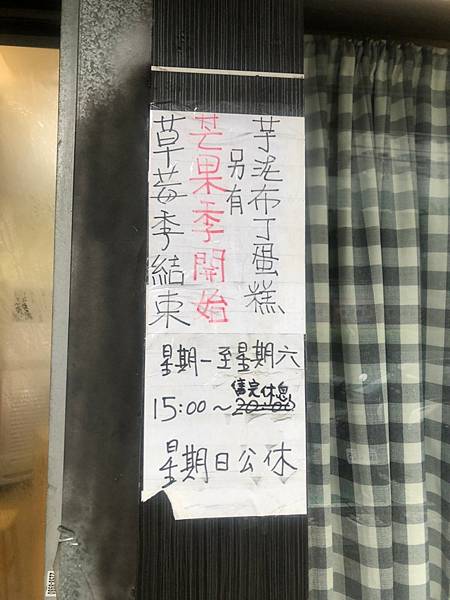 芋泥布丁蛋糕
另有
芒果季開始
草莓季結束
星期一至星期六
售完休息
15:00~20:00
星期日公休